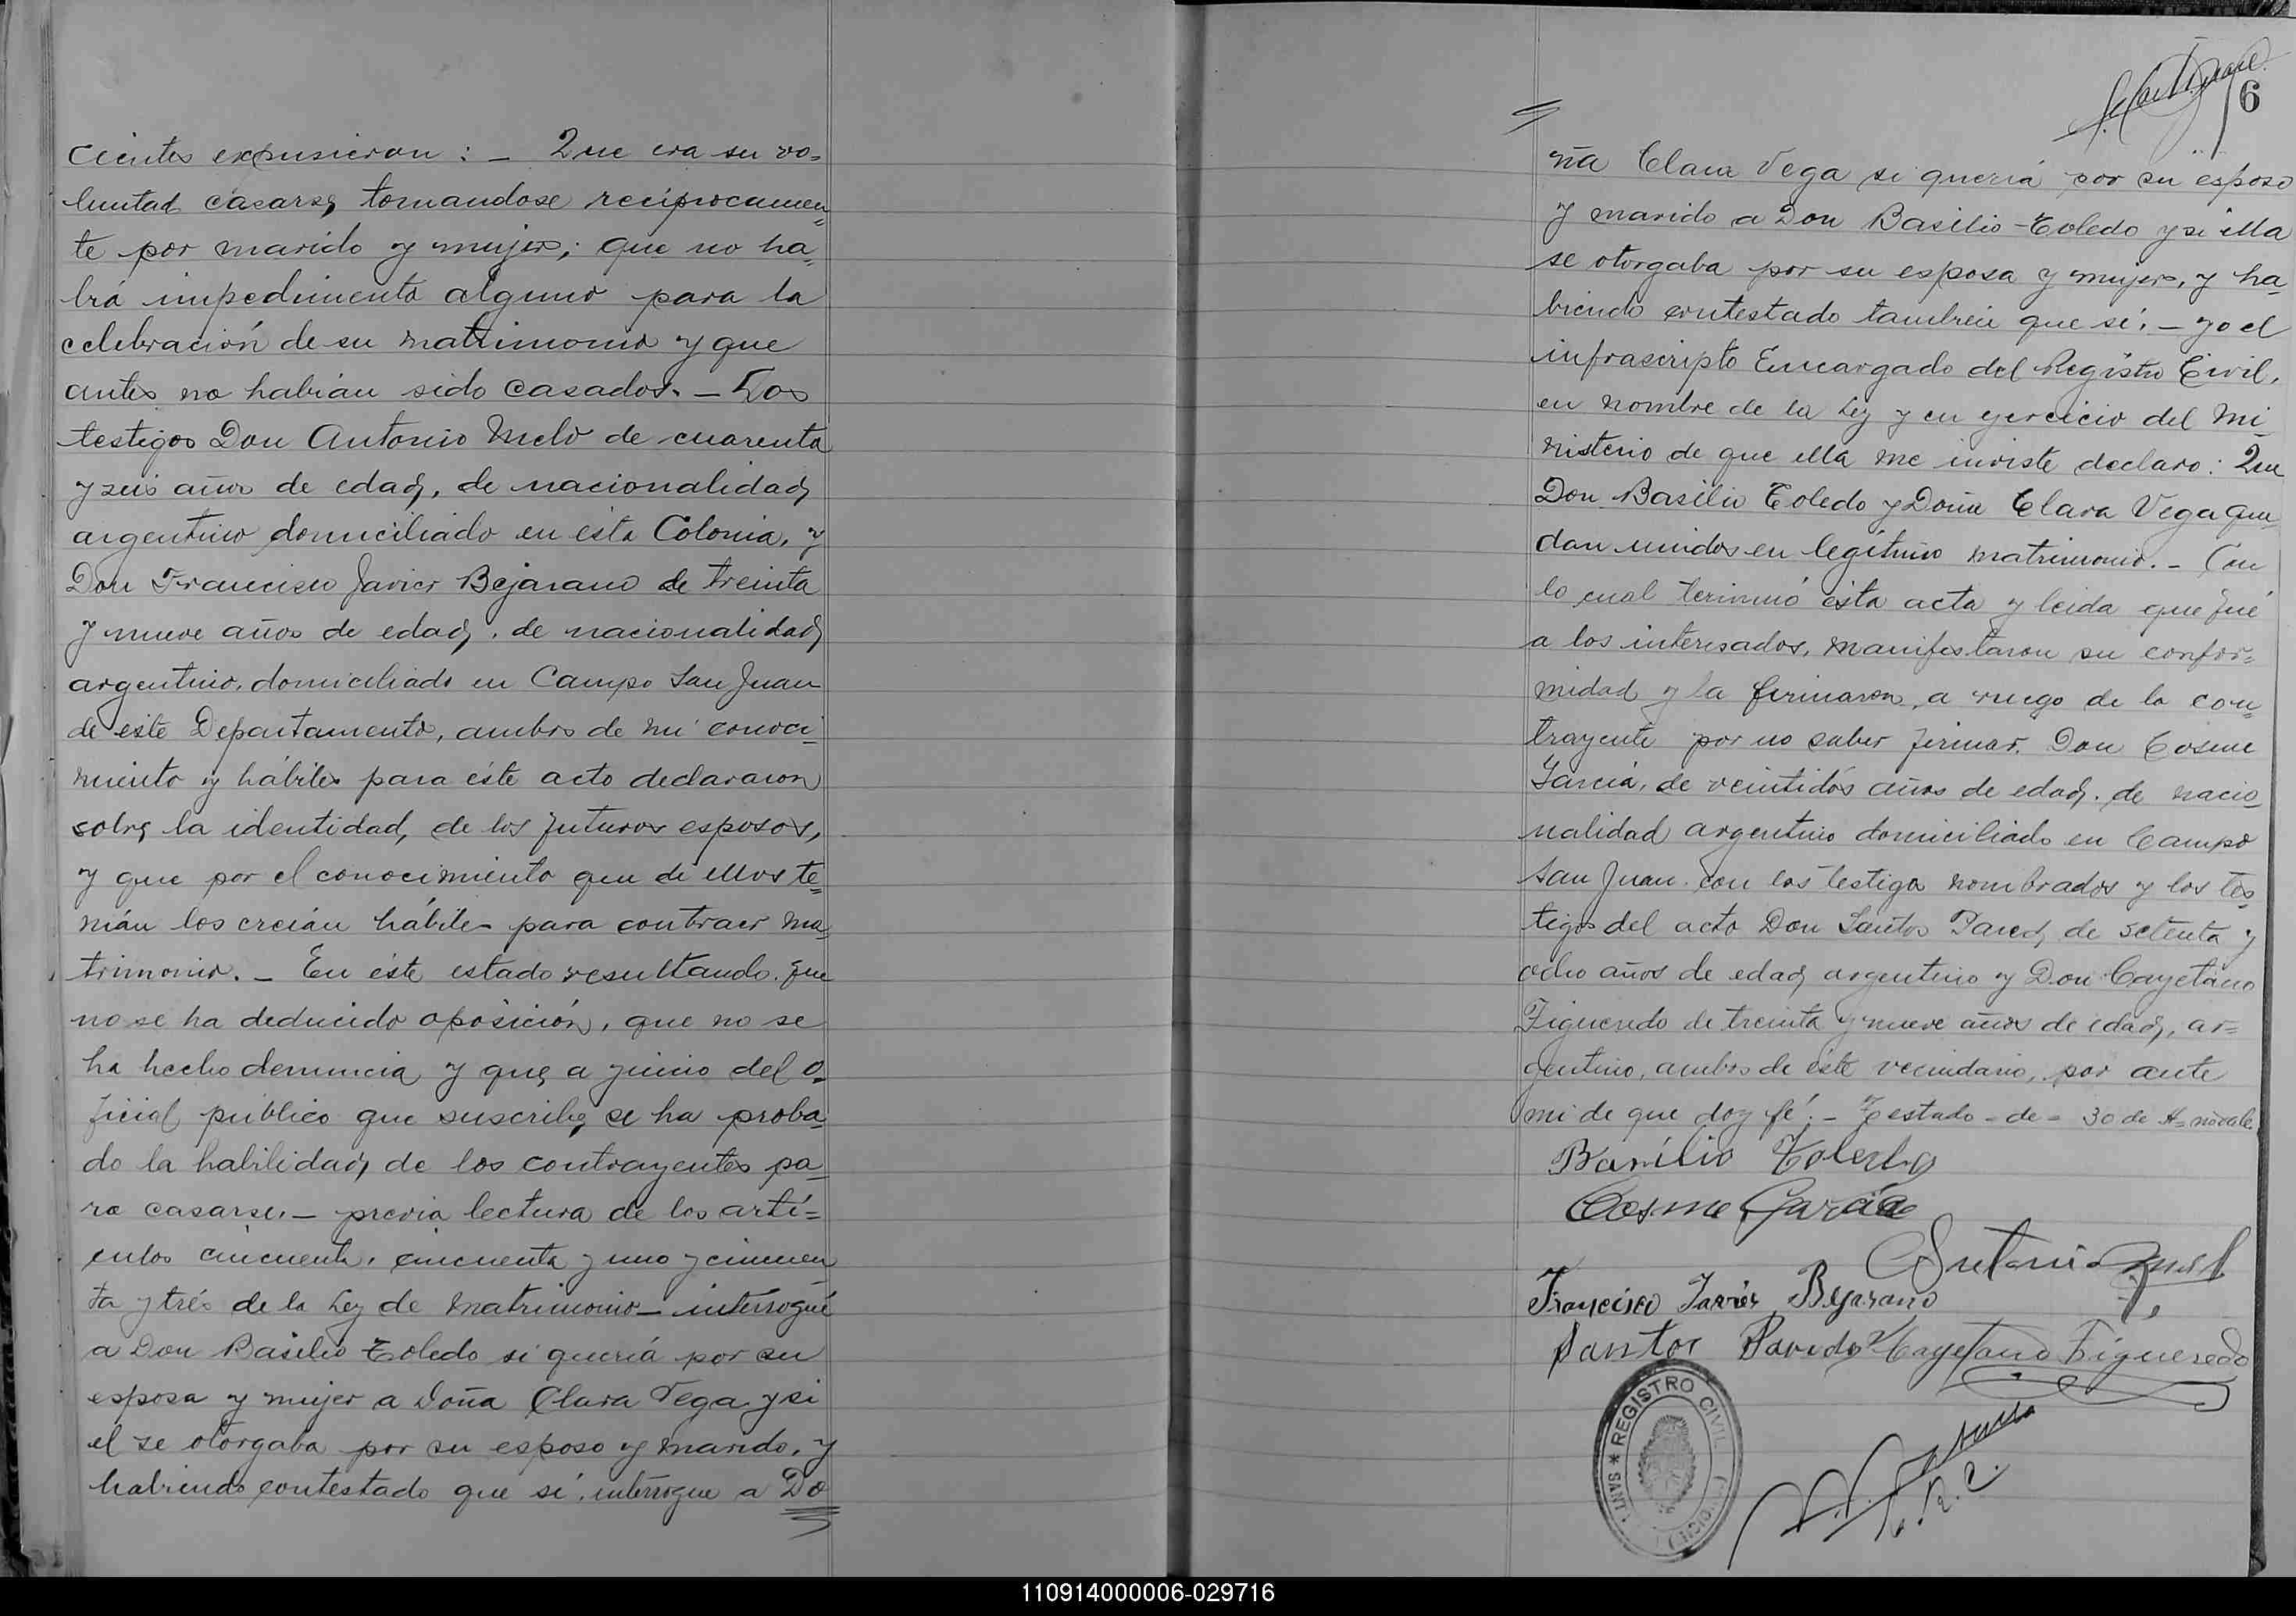 cientes expusieron: _ Que era su vo=
luntad casarse, tomandose recíprocamen=
te por marido y mujer; que no ha=
brá impedimento alguno para la
celebración de su matrimonio y que
antes no habían sido casados. _ Los
testigos Don Antonio Melo de cuarenta
y seis años de edad, de nacionalidad
argentino domiciliado en ésta Colonia, y
Don Francisco Javier Bejarano de treinta
y nueve años de edad, de nacionalidad
argentino, domiciliado en Campo San Juan
de este Departamento, ambos de mi conoci=
miento y hábiles para éste acto declararon
sobre la identidad, de los futuros esposos,
y que por el conocimiento que de ellos te=
nián los creián hábiles para contraer ma=
trimonio. _ En éste estado resultando que
no se ha deducido oposición, que no se
ha hecho denuncia y que, a juicio del o=
ficial público que suscribe, se ha proba=
do la habilidad, de los contrayentes pa=
ra casarse. _ previa lectura de los artí=
culos cincuenta, cincuenta y uno y cincuen=
ta y trés de la Ley de Matrimonio _ interrogué
a Don Basilio Toledo si queriá por su
esposa y mujer a Doña Clara Vega y si
el se otorgaba por su esposo y marido, y
habiendo contestado que sí, interrogue a Do
6
ña Clara Vega si queriá por su esposo
y marido a Don Basilio Toledo y si ella
se otorgaba por su esposa y mujer, y ha=
biendo contestado tambien que sí, _ yo el
infrascripto Encargado del Registro Civil,
en nombre de la Ley y en ejercicio del Mi
nisterio de que ella me inviste declaro: Que
Don Basilio Toledo y Doña Clara Vega que
dan unidos en legítimo matrimonio. _ Con
lo cual terminó ésta acta y leida que fué
a los interesados, manifestaron su confor=
midad y la firmaron, a ruego de la con=
trayente por no saber firmar, Don Cosme
Garciá, de veintidós años de edad, de nacio=
nalidad argentino domiciliado en Campo
San Juan, con los testigos nombrados y los tes=
tigos del acto Don Santos Pared, de setenta y
ocho años de edad, argentino y Don Cayetano
Figueredo de treinta y nueve años de edad, ar=
gentino, ambos de éste vecindario, por ante
mi de que doy fé. _ Testado - de - 30 de A= no vale
Basilio Toledo
Cosme García
Antonio Mel
Francisco Javier Bejarano
Santos Paredes Cayetano Figueredo
REGISTRO CIVIL
110914000006-029716